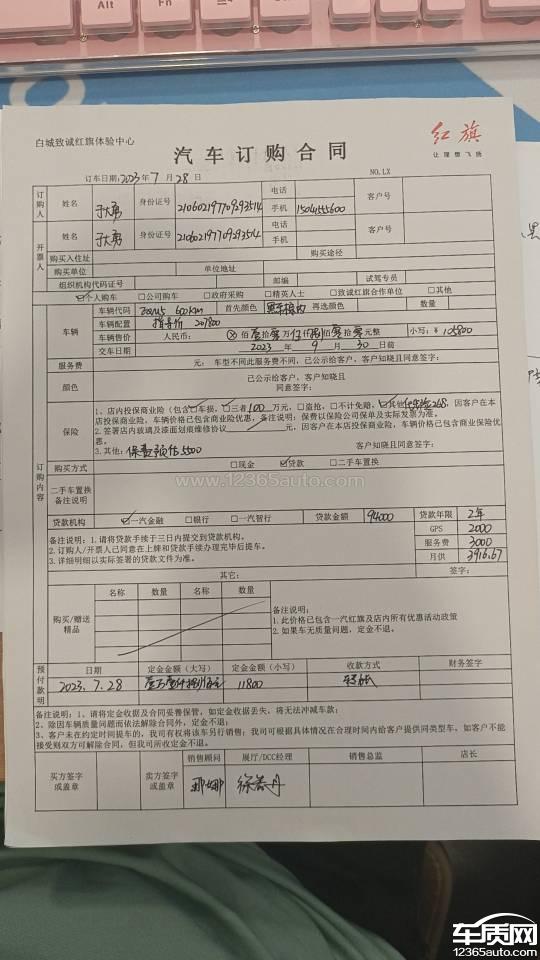 Alt
Fn
白城致诚红旗体验中心
红旗
让理想飞扬
汽车订购合同
订车日期:2023年7月28日
NO.LX
订购人
姓名
身份证号
电话
手机
客户号
开票人
姓名
身份证号
电话
手机
客户号
购买入住址
购买途径
购买单位
单位地址
组织机构代码证号
邮编
试驾专员
☑个人购车 □公司购车 □政府采购 □精英人士 □致诚红旗合作单位 □其他
车辆
车辆代码
600km
首先颜色
再选颜色
数量
车辆配置
指导价 207800
车辆售价
人民币:
元整
小写:¥105800
交车日期
2023 年 9 月 30 日前
服务费
元: 车型不同此服务费不同,已公示给客户,客户知晓且同意签字:
颜色
已公示给客户,客户知晓且
同意签字:
保险
1、店内投保商业险(包含☑车损,□三者100万元,□盗抢,□不计免赔,☑其他
268,因客户在本
店投保商业险,车辆价格已包含商业险优惠,备注说明:保费以保险公司保单及实际发票为准。
2.签署店内玻璃及漆面划痕维修协议
元,因客户在本店投保商业险,车辆价格已包含商业险保险优
惠。
3.其他:保费预估5500
客户知晓且同意签字:
订购内容
购买方式
□现金 ☑贷款 □二手车置换
二手车置换
备注说明
www.12365auto.com
贷款机构
☑一汽金融 □银行 □一汽智行
贷款金额
94000
贷款年限
2年
备注说明:1.请将贷款手续于三日内提交到贷款机构。
2.订购人/开票人已同意在上牌和贷款手续办理完毕后提车。
3.详细明细以实际签署的贷款文件为准。
GPS
2000
服务费
3000
月供
3916.67
其它:
签字:
购买/赠送
精品
名称
数量
名称
数量
备注说明:
1.此价格已包含一汽红旗及店内所有优惠活动政策
2.如果车无质量问题,定金不退。
预付款明
日期
定金金额(大写)
定金金额(小写)
收款方式
财务签字
2023.7.28
11800
备注说明:1、请将定金收据及合同妥善保管,如定金收据丢失,将无法冲减车款;
2、除因车辆质量问题而依法解除合同外,定金不退;
3、客户未在约定时间提车的,我司有权将该车另行销售;我司可根据具体情况在合理时间内给客户提供同类型车,如客户不能
接受则双方可解除合同,但我司所收定金不退。
买方签字
或盖章
卖方签字
或盖章
销售顾问
展厅/DCC经理
销售总监
店长
车质网
12365auto.com